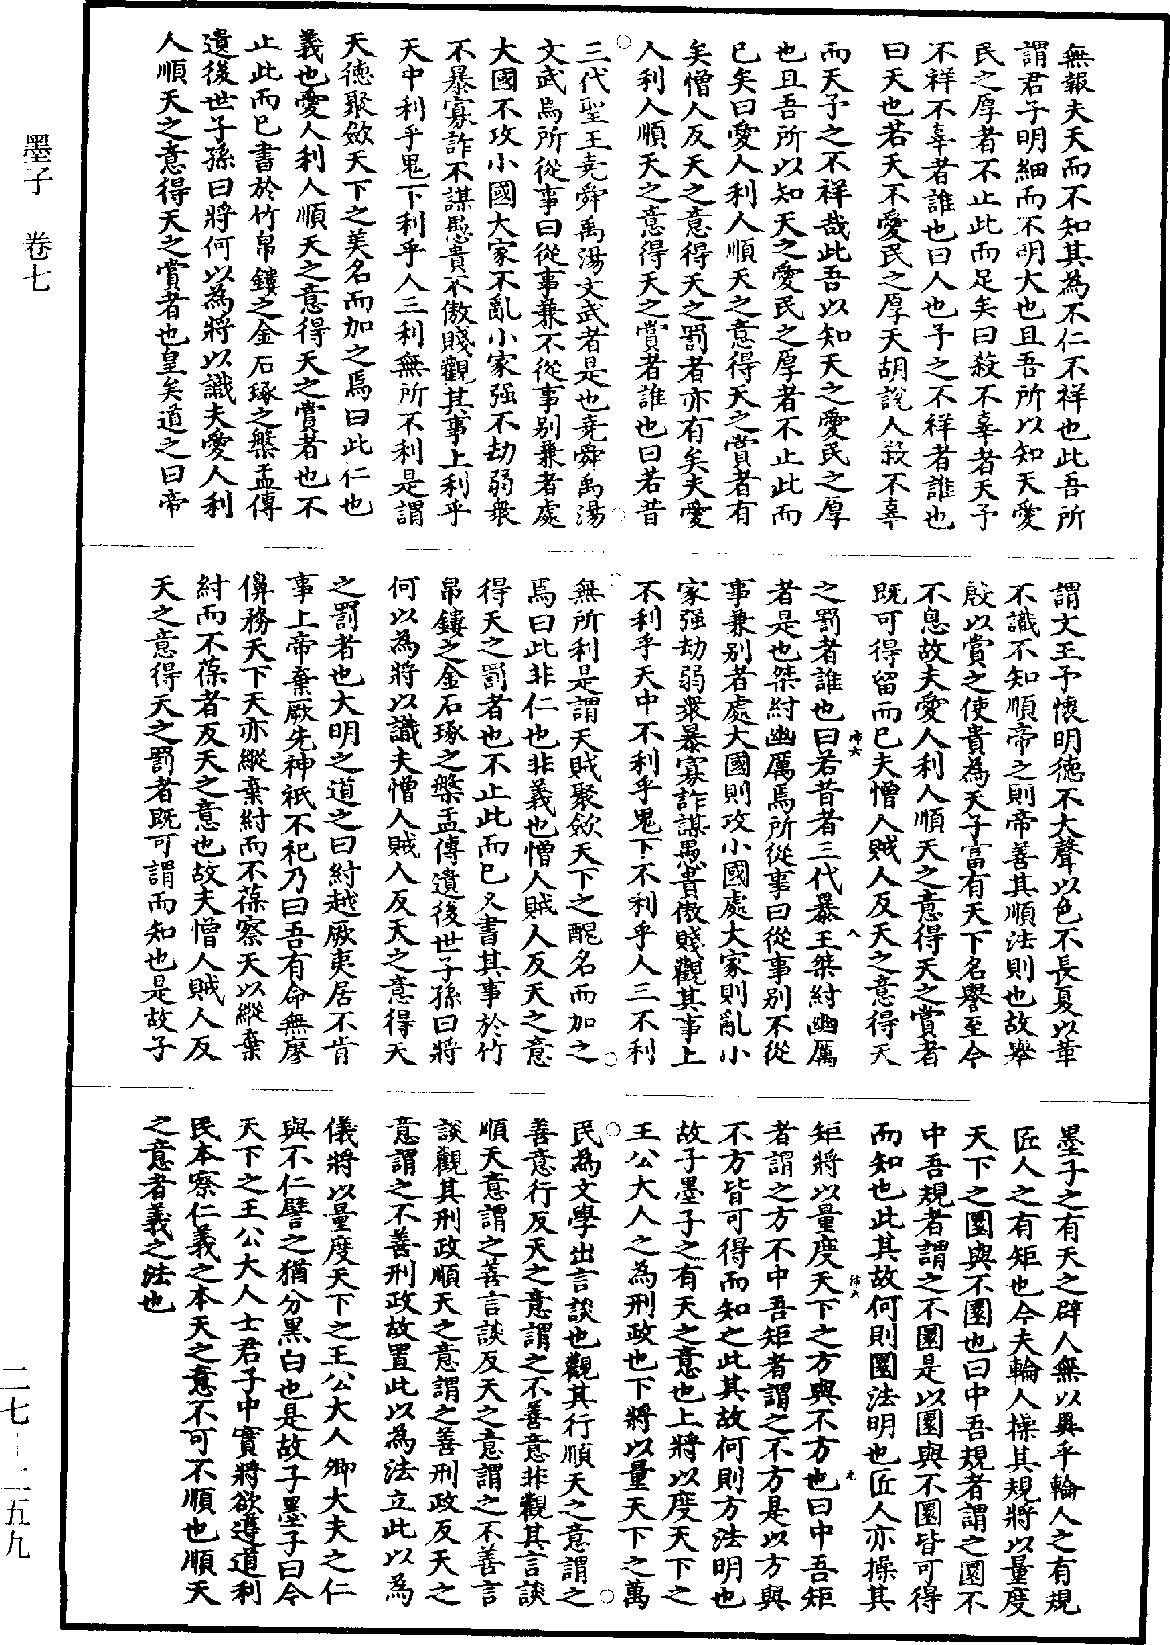 無報夫天而不知其為不仁不祥也此吾所
謂君子明細而不明大也且吾所以知天愛
民之厚者不止此而足矣曰殺不辜者天予
不祥不辜者誰也曰人也予之不祥者誰也
曰天也若天不愛民之厚天胡說人殺不辜
而天予之不祥哉此吾以知天之愛民之厚
也且吾所以知天之愛民之厚者不止此而
已矣曰愛人利人順天之意得天之賞者有
矣憎人反天之意得天之罰者亦有矣夫愛
人利人順天之意得天之賞者誰也曰若昔
三代聖王堯舜禹湯文武者是也堯舜禹湯
文武焉所從事曰從事兼不從事別兼者處
大國不攻小國大家不亂小家强不劫弱衆
不暴寡詐不謀愚貴不傲賤觀其事上利乎
天中利乎鬼下利乎人三利無所不利是謂
天德聚斂天下之美名而加之焉曰此仁也
義也愛人利人順天之意得天之賞者也不
止此而已書於竹帛鏤之金石琢之槃盂傳
遺後世子孫曰將何以為將以識夫愛人利
人順天之意得天之賞者也皇矣道之曰帝
謂文王予懷明德不大聲以色不長夏以革
不識不知順帝之則帝善其順法則也故舉
殷以賞之使貴為天子富有天下名譽至今
不息故夫愛人利人順天之意得天之賞者
既可得留而已夫憎人賊人反天之意得天
之罰者誰也曰若昔者三代暴王桀紂幽厲
者是也桀紂幽厲焉所從事曰從事别不從
事兼别者處大國則攻小國處大家則亂小
家强劫弱衆暴寡詐謀愚貴傲賤觀其事上
不利乎天中不利乎鬼下不利乎人三不利
無所利是謂天賊聚斂天下之醜名而加之
焉曰此非仁也非義也憎人賊人反天之意
得天之罰者也不止此而已又書其事於竹
帛鏤之金石琢之槃盂傳遺後世子孫曰將
何以為將以識夫憎人賊人反天之意得天
之罰者也大明之道之曰紂越厥夷居不肯
事上帝棄厥先神祇不祀乃曰吾有命無廖
𠏆務天下天亦縱棄紂而不葆察天以縱棄
紂而不葆者反天之意也故夫憎人賊人反
天之意得天之罰者既可謂而知也是故子
墨子之有天之辟人無以異乎輪人之有規
匠人之有矩也今夫輪人操其規將以量度
天下之圜與不圜也曰中吾規者謂之圜不
中吾規者謂之不圜是以圜與不圜皆可得
而知也此其故何則圜法明也匠人亦操其
矩將以量度天下之方與不方也曰中吾矩
者謂之方不中吾矩者謂之不方是以方與
不方皆可得而知之此其故何則方法明也
故子墨子之有天之意也上將以度天下之
王公大人之為刑政也下將以量天下之萬
民為文學出言談也觀其行順天之意謂之
善意行反天之意謂之不善意非觀其言談
順天意謂之善言談反天之意謂之不善言
談觀其刑政順天之意謂之善刑政反天之
意謂之不善刑政故置此以為法立此以為
儀將以量度天下之王公大人卿大夫之仁
與不仁譬之猶分黑白也是故子墨子曰今
天下之王公大人士君子中實將欲遵道利
民本察仁義之本天之意不可不順也順天
之意者義之法也
墨子 卷七
二七-二五九